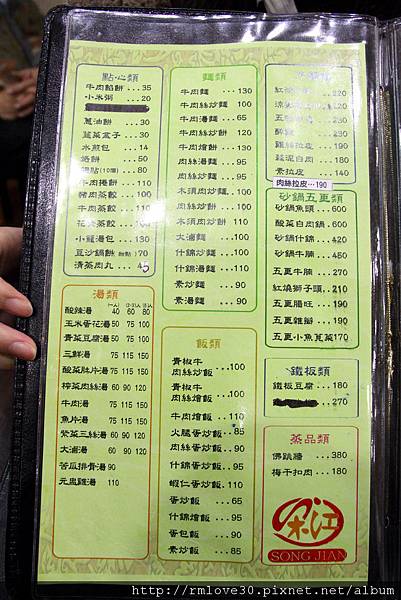 點心類
牛肉餡餅...35
小米粥...20
蔥油餅...30
韮菜盒子...30
水煎包...14
烙餅...50
鍋貼(10個)...80
牛肉捲餅...110
豬肉蒸餃...100
牛肉蒸餃...110
花素蒸餃...110
小籠湯包...130
豆沙鍋餅...120
清蒸肉丸...45
湯類
酸辣湯 40 60 80
玉米蛋花湯 50 75 100
青菜豆腐湯 50 75 100
三鮮湯 75 115 150
酸菜肚片湯 75 115 150
榨菜肉絲湯 60 90 120
牛肉湯 75 115 150
魚片湯 75 115 150
紫菜三絲湯 60 90 120
大滷湯 60 90 120
苦瓜排骨湯 90
元盅雞湯 110
麵類
牛肉麵...130
牛肉絲炒麵...100
牛肉湯麵...65
牛肉絲炒餅...120
牛肉燴餅...130
肉絲湯麵...90
肉絲炒麵...90
木須肉炒麵...100
肉絲炒餅...100
木須肉炒餅 110
大滷麵...100
什錦炒麵...100
什錦湯麵...110
素炒麵...90
素湯麵...90
飯類
青椒牛
肉絲炒飯...100
青椒牛
肉絲燴飯...100
牛肉燴飯...110
火腿蛋炒飯...85
肉絲蛋炒飯...90
什錦蛋炒飯...95
蝦仁蛋炒飯 110
蛋炒飯...65
什錦燴飯...95
蛋包飯...90
素炒飯...85
220
230
210
醉雞...210
雞絲拉皮...190
蒜泥白肉...190
素拉皮...140
肉絲拉皮...190
砂鍋五更類
砂鍋魚頭...600
酸菜白肉鍋...500
砂鍋什錦...450
砂鍋牛腩...450
五更牛腩...270
紅燒獅子頭...270
五更腸旺...190
五更雞腳...190
五更小魚莧菜170
鐵板類
鐵板豆腐...180
...270
蒸品類
佛跳牆...380
梅干扣肉...180
松江
SONG JIAN
http://rmlove30.pixnet.net/album